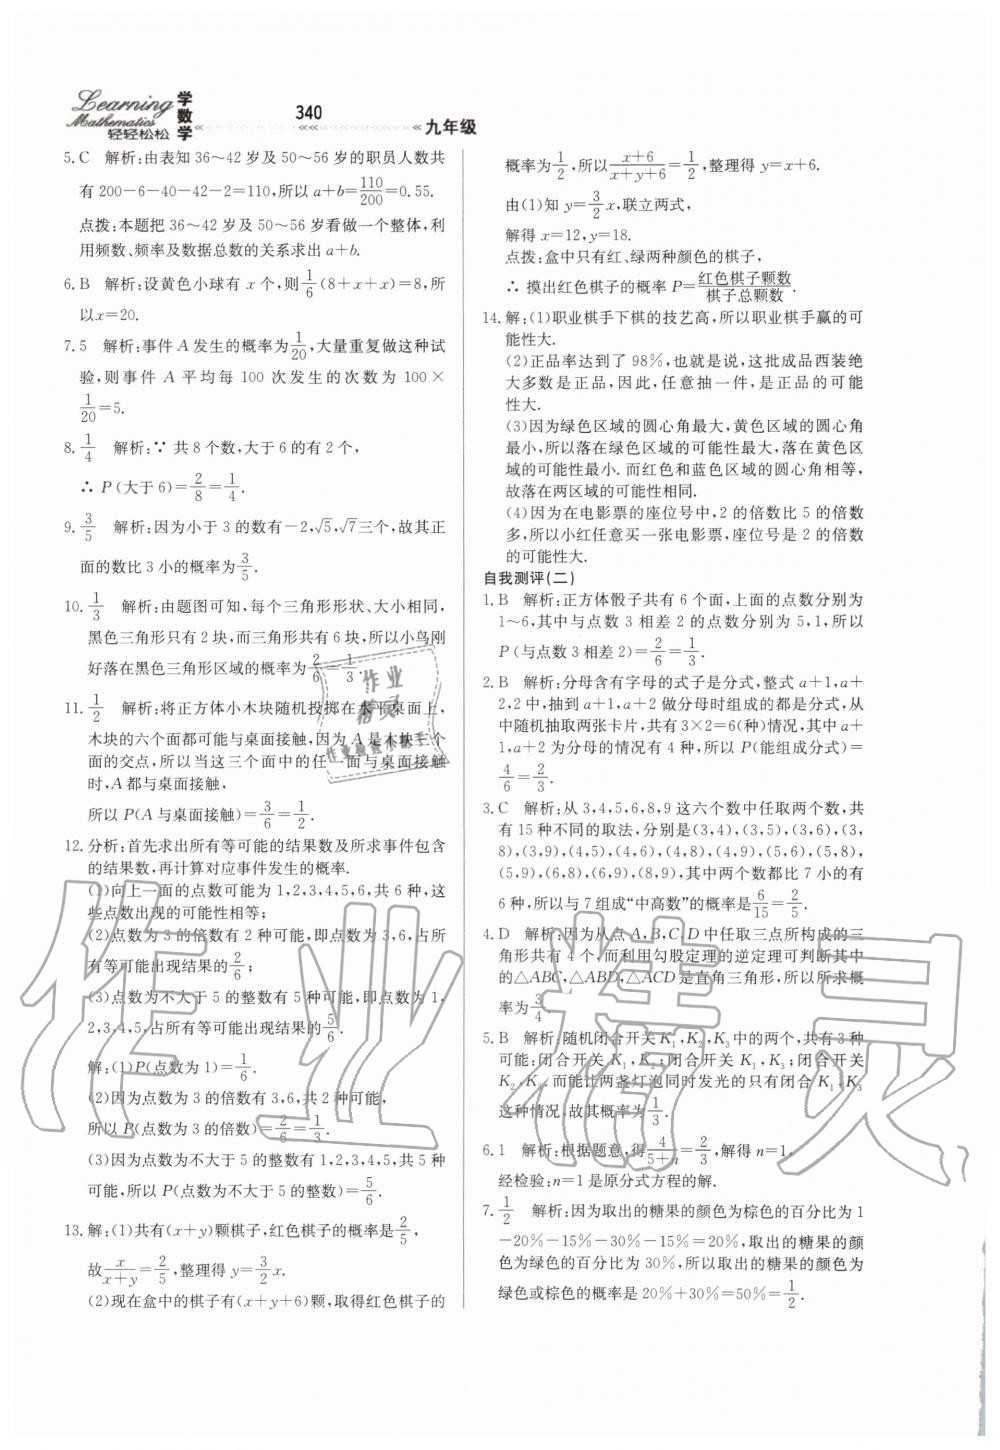 Learning
Mathematics
学数学
轻轻松松
340
九年级
5. C 解析:由表知 36～42 岁及 50～56 岁的职员人数共
有 200-6-40-42-2=110,所以 a+b=110/200=0.55.
点拨:本题把 36～42 岁及 50～56 岁看做一个整体,利
用频数、频率及数据总数的关系求出 a+b.
6. B 解析:设黄色小球有 x 个,则1/6(8+x+x)=8,所
以x=20.
7. 5 解析:事件 A 发生的概率为1/20,大量重复做这种试
验,则事件 A 平均每 100 次发生的次数为 100×
1/20=5.
8. 1/4 解析:∵ 共 8 个数,大于 6 的有 2 个,
∴ P(大于 6)=2/8=1/4.
9. 3/5 解析:因为小于 3 的数有-2,√5,√7三个,故其正
面的数比 3 小的概率为3/5.
10. 1/3 解析:由题图可知,每个三角形形状、大小相同,
黑色三角形只有 2 块,而三角形共有 6 块,所以小鸟刚
好落在黑色三角形区域的概率为2/6=1/3.
11. 1/2 解析:将正方体小木块随机投掷在水平桌面上,
木块的六个面都可能与桌面接触,因为 A 是木块三个
面的交点,所以当这三个面中的任一面与桌面接触
时,A 都与桌面接触,
所以 P(A 与桌面接触)=3/6=1/2.
12. 分析:首先求出所有等可能的结果数及所求事件包含
的结果数,再计算对应事件发生的概率.
(1)向上一面的点数可能为 1,2,3,4,5,6,共 6 种,这
些点数出现的可能性相等;
(2)点数为 3 的倍数有 2 种可能,即点数为 3,6,占所
有等可能出现结果的2/6;
(3)点数为不大于 5 的整数有 5 种可能,即点数为 1,
2,3,4,5,占所有等可能出现结果的5/6.
解:(1)P(点数为 1)=1/6.
(2)因为点数为 3 的倍数有 3,6,共 2 种可能,
所以 P(点数为 3 的倍数)=2/6=1/3.
(3)因为点数为不大于 5 的整数有 1,2,3,4,5,共 5 种
可能,所以 P(点数为不大于 5 的整数)=5/6.
13. 解:(1)共有(x+y)颗棋子,红色棋子的概率是2/5,
故x/(x+y)=2/5,整理得 y=3/2x.
(2)现在盒中的棋子有(x+y+6)颗,取得红色棋子的
概率为1/2,所以(x+6)/(x+y+6)=1/2,整理得 y=x+6.
由(1)知 y=3/2x,联立两式,
解得 x=12,y=18.
点拨:盒中只有红、绿两种颜色的棋子,
∴ 摸出红色棋子的概率 P=红色棋子颗数/棋子总颗数.
14. 解:(1)职业棋手下棋的技艺高,所以职业棋手赢的可
能性大.
(2)正品率达到了 98%,也就是说,这批成品西装绝
大多数是正品,因此,任意抽一件,是正品的可能
性大.
(3)因为绿色区域的圆心角最大,黄色区域的圆心角
最小,所以落在绿色区域的可能性最大,落在黄色区
域的可能性最小.而红色和蓝色区域的圆心角相等,
故落在两区域的可能性相同.
(4)因为在电影票的座位号中,2 的倍数比 5 的倍数
多,所以小红任意买一张电影票,座位号是 2 的倍数
的可能性大.
自我测评(二)
1. B 解析:正方体骰子共有 6 个面,上面的点数分别为
1～6,其中与点数 3 相差 2 的点数分别为 5,1,所以
P(与点数 3 相差 2)=2/6=1/3.
2. B 解析:分母含有字母的式子是分式,整式 a+1,a+
2,2 中,抽到 a+1,a+2 做分母时组成的都是分式,从
中随机抽取两张卡片,共有 3×2=6(种)情况,其中 a+
1,a+2 为分母的情况有 4 种,所以 P(能组成分式)=
4/6=2/3.
3. C 解析:从 3,4,5,6,8,9 这六个数中任取两个数,共
有 15 种不同的取法,分别是(3,4),(3,5),(3,6),(3,
8),(3,9),(4,5),(4,6),(4,8),(4,9),(5,6),(5,8),
(5,9),(6,8),(6,9),(8,9),其中两个数都比 7 小的有
6 种,所以与 7 组成“中高数”的概率是6/15=2/5.
4. D 解析:因为从点 A,B,C,D 中任取三点所构成的三
角形共有 4 个,而利用勾股定理的逆定理可判断其中
的△ABC,△ABD,△ACD 是直角三角形,所以所求概
率为3/4.
5. B 解析:随机闭合开关 K₁,K₂,K₃ 中的两个,共有 3 种
可能:闭合开关 K₁,K₂;闭合开关 K₁,K₃;闭合开关
K₂,K₃.而能让两盏灯泡同时发光的只有闭合 K₁,K₃
这种情况.故其概率为1/3.
6. 1 解析:根据题意,得4/(5+n)=2/3,解得 n=1,
经检验:n=1 是原分式方程的解.
7. 1/2 解析:因为取出的糖果的颜色为棕色的百分比为 1
-20%-15%-30%-15%=20%,取出的糖果的颜
色为绿色的百分比为 30%,所以取出的糖果的颜色为
绿色或棕色的概率是 20%+30%=50%=1/2.
作业
精灵
作业检查小助手
作业精灵